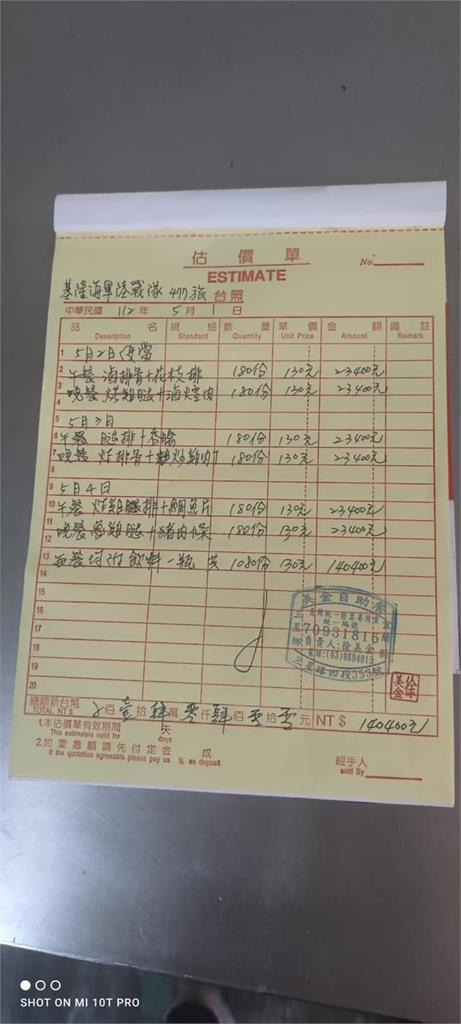 估價單
ESTIMATE
No.
基隆海軍陸戰隊 477旅 台照
中華民國 112年 5月 1日
品 名 規 格 數 量 單 價 金 額 備 註
Description Standard Quantity Unit Price Amount Remark
1 5月2日便當
2 午餐 滷排骨+花枝排 180份 130元 23400元
3 晚餐 烤雞腿+滷焢肉 180份 130元 23400元
4
5 5月3日
6 午餐 腿排+香腸 180份 130元 23400元
7 晚餐 炸排骨+ 180份 130元 23400元
8
9 5月4日
10 午餐 炸雞腿排+鯛魚片 180份 130元 23400元
11
12 晚餐 魯雞腿+豬肉條 180份 130元 23400元
13 每餐均附飲料一瓶 共 1080份 130元 140400元
14
15
16
17
18
19
20
美金自助餐
統一編號
70931815
負責人:徐美金
電話:(03)9894013
三星路四段353號
總額新台幣 佰壹拾肆萬零仟肆佰零拾零元 NT$ 140400元
TOTAL NT$
1.本估價單有效期間 天
This estimate is valid for days
2.如蒙惠顧請先付定金 成
If the quotation agreeable, please pay us % as deposit
經手人
Sold By
SHOT ON MI 10T PRO